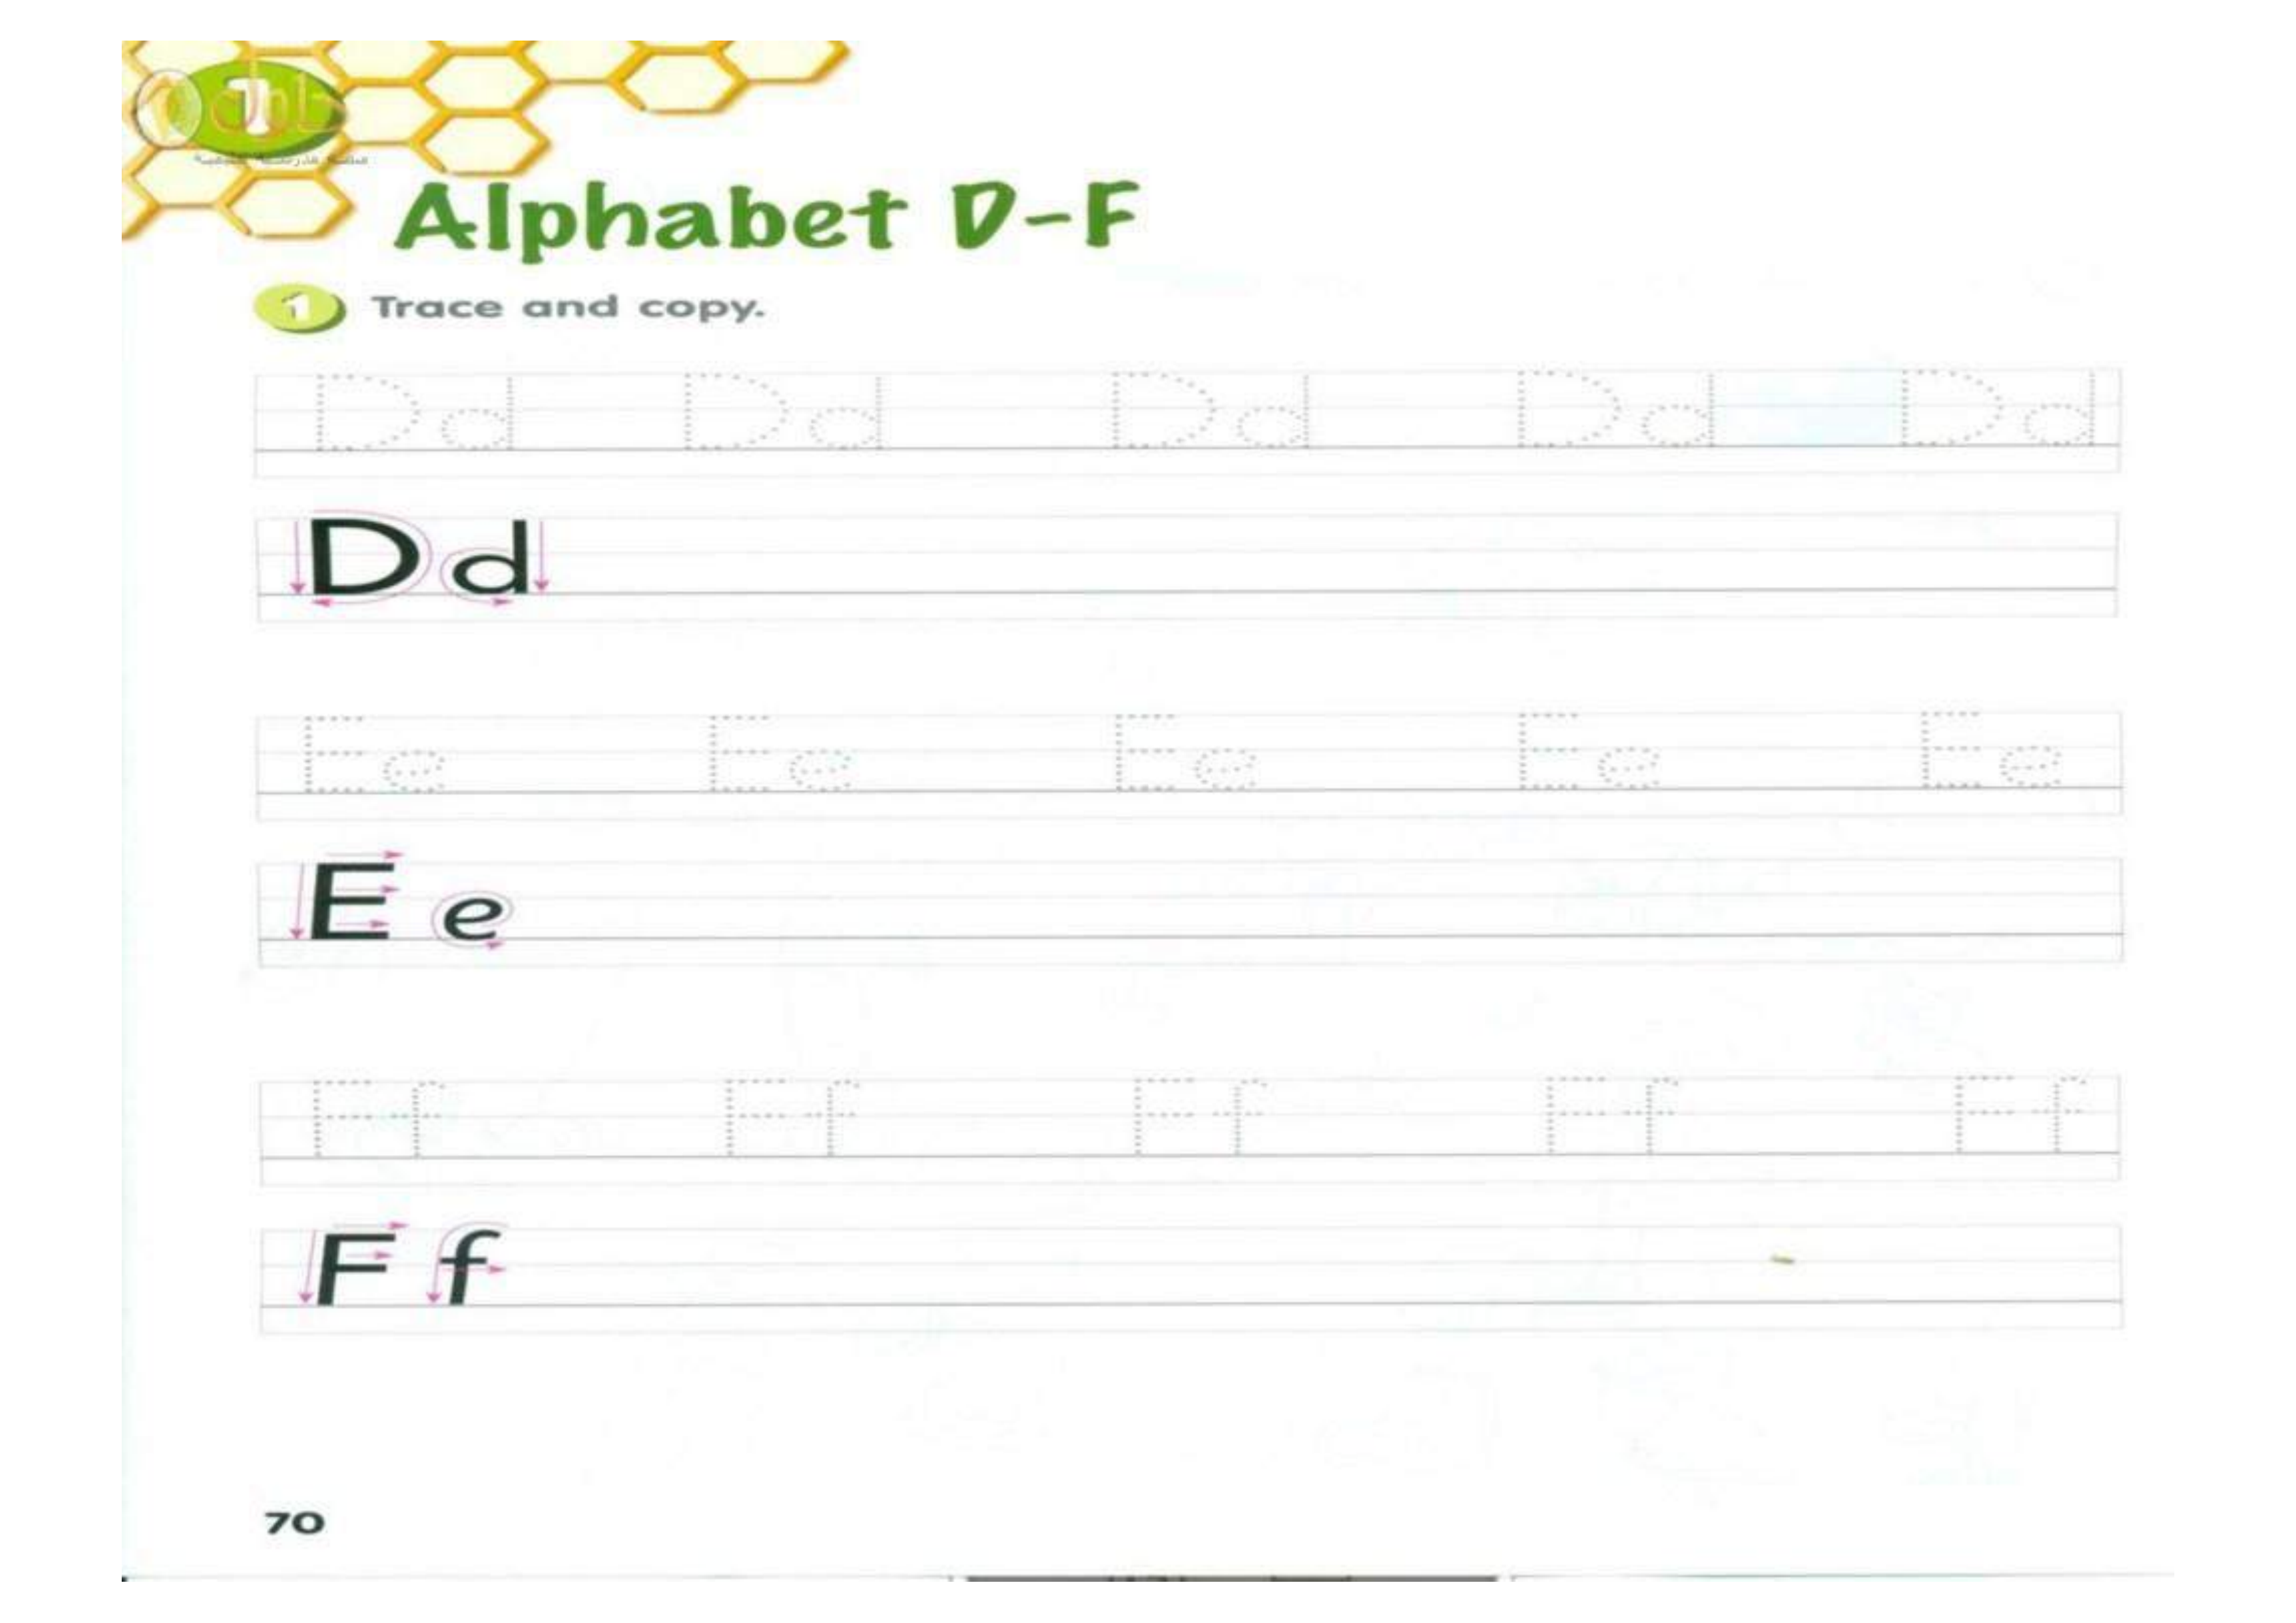 1
Alphabet D-F
1 Trace and copy.
Dd Dd Dd Dd Dd
Dd
Ee Ee Ee Ee Ee
Ee
Ff Ff Ff Ff Ff
Ff
70